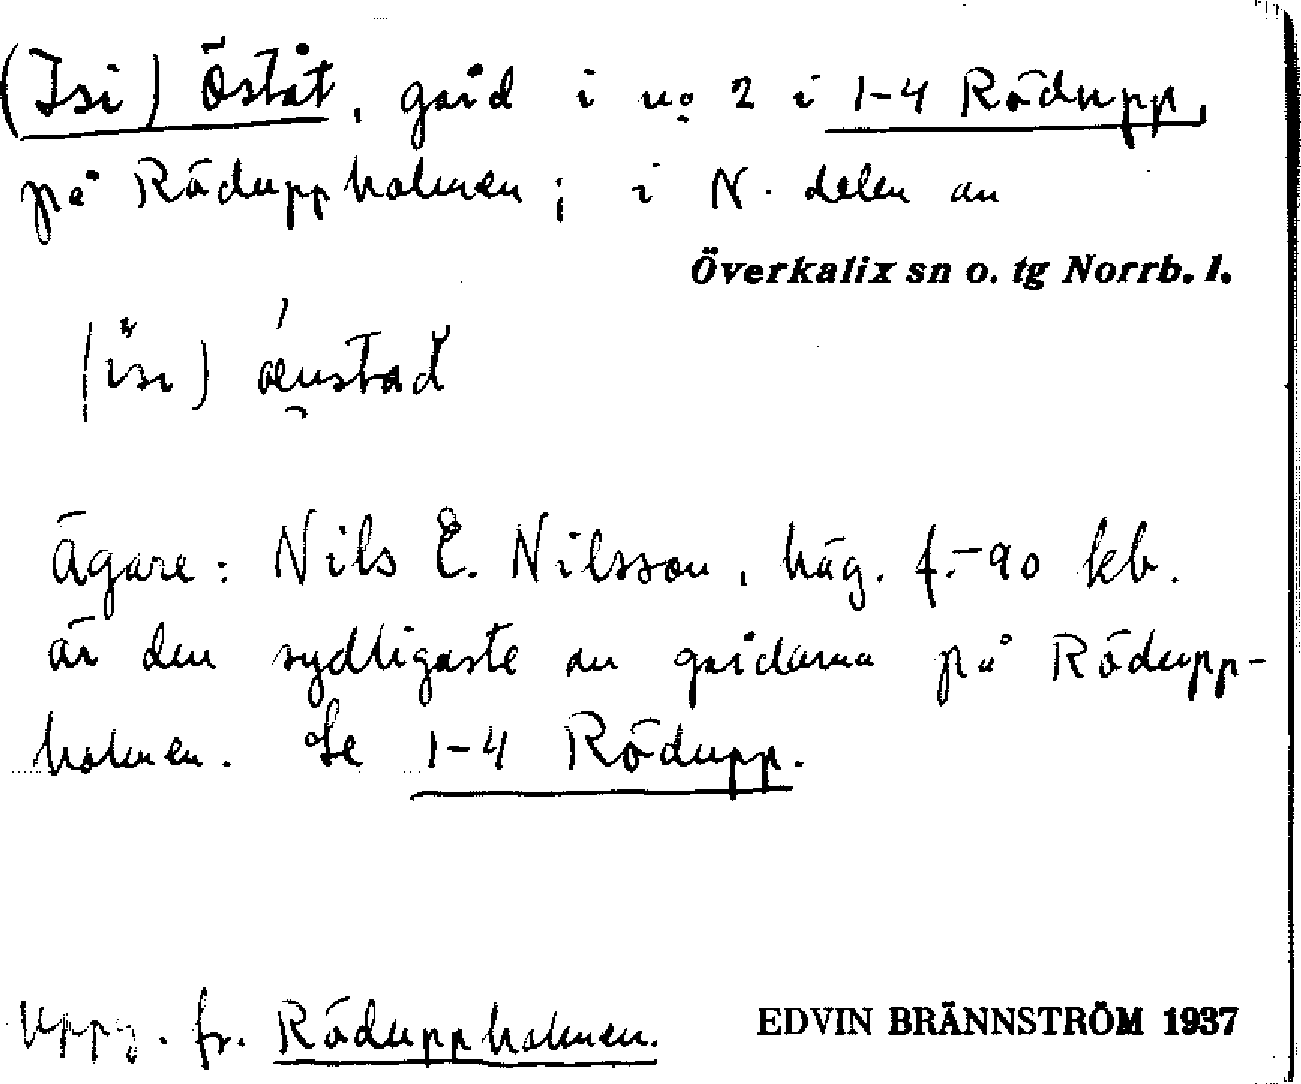 (Isi) Öståt, gård i no 2 i 1-4 Rödupp,
på Röduppholmen; i N. delen av
Överkalix sn o. tg Norrb. l.
ägare: Nils E. Nilsson, häg. f.-90 kb.
är den sydligaste av gårdarna på Rödupp-
holmen. Se 1-4 Rödupp.
Uppg. fr. Röduppholmen.
EDVIN BRÄNNSTRÖM 1937